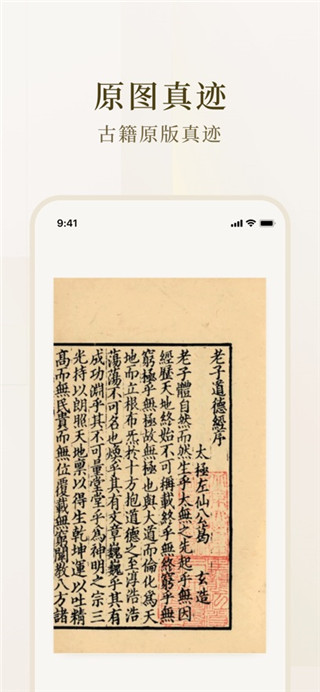 原图真迹
古籍原版真迹
9:41
老子道德經序
太極左仙公葛 玄造
老子體自然而然生乎太無之先起乎無因
經歷天地終始不可稱載終乎無終窮乎無
窮極乎無極故無極也與大道而倫化爲天
地而立根布炁於十方抱道德之至淳浩浩
蕩蕩不可名也煥乎其有文章巍巍乎其有
成功淵乎其不可量堂堂乎爲神明之宗三
光持以朗照天地禀得生乾坤運以吐精
高而無民貴而無位覆載無窮闡教八方諸